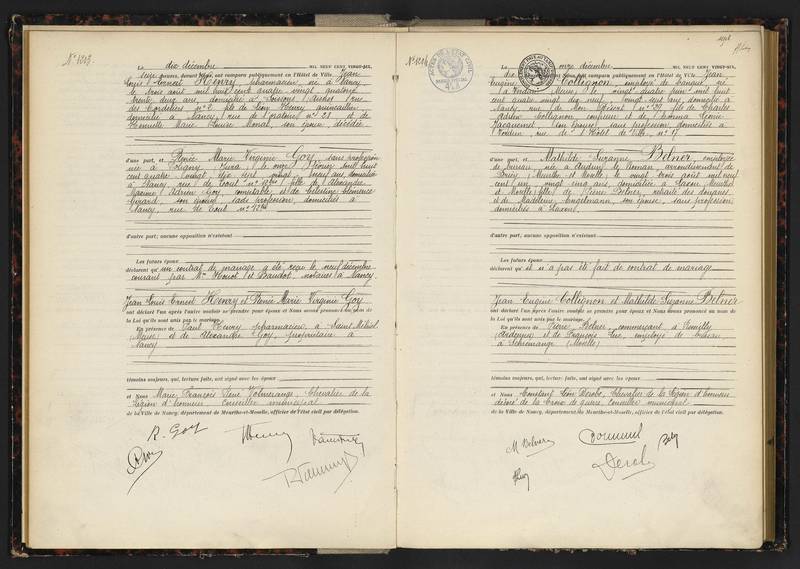 N° 1203
Le dix décembre MIL NEUF CENT VINGT-SIX,
seize heures, devant Nous, ont comparu publiquement en l'Hôtel de Ville, Jean
Louis Ernest Henry, pharmacien, né à Nancy,
le trois août mil huit cent quatre vingt quatorze
trente deux ans, domicilié à Soissons (Aisne) rue
des Cordeliers n° 8 fils de Léon Henry, quincaillier
domicilié à Nancy, rue de l'oratoire n° 28 et de
Henriette Marie Louise Monal, son épouse, décédée
d'une part, et Renée Marie Virginie Goy, sans profession
née à Ligny, le onze février mil huit
cent quatre vingt dix sept vingt neuf ans, domiciliée
à Nancy, rue de Toul n° fille d'Alexandre
Goy, comptable, et de Célestine Clémence
Girard, son épouse, sans profession, domiciliés à
Nancy, rue de Toul n°
d'autre part; aucune opposition n'existant
Les futurs époux
déclarent qu'un contrat de mariage a été reçu le neuf décembre
courant par Me Houot et Baudot, notaires à Nancy.
Jean Louis Ernest Henry et Renée Marie Virginie Goy
ont déclaré l'un après l'autre vouloir se prendre pour époux et Nous avons prononcé au nom de
la Loi qu'ils sont unis par le mariage.
En présence de Paul Henry pharmacien, à Saint Mihiel
(Meuse) et de Alexandre Goy, propriétaire à
Nancy
témoins majeurs, qui, lecture faite, ont signé avec les époux
et Nous Marie François René Volmerange, Chevalier de la
Légion d'honneur Conseiller municipal
de la Ville de Nancy, département de Meurthe-et-Moselle, officier de l'état civil par délégation.
R. Goy
N° 1204
Le onze décembre MIL NEUF CENT VINGT-SIX,
dix heures, devant Nous, ont comparu publiquement en l'Hôtel de Ville, Jean
Eugène Collignon, employé de banque, né
à Verdun (Meuse) le vingt quatre juin mil huit
cent quatre vingt dix neuf, vingt sept ans, domicilié à
Nancy, rue de Mon Désert n° 29 fils de Charles
Collignon confiseur et de Emma Léonie
Jacquemet, son épouse, sans profession, domiciliés à
Verdun, rue de l'Hôtel de Ville, n° 17
d'une part, et Mathilde Suzanne Belner, employée
de bureau, née à le Roman, arrondissement de
Briey (Meurthe et Moselle) le vingt trois août mil neuf
cent un vingt cinq ans, domiciliée à Laxou Meurthe
et Moselle fille de Pierre Belner, retraité des douanes
et de Madeleine Engelmann, son épouse, sans profession
domiciliés à Laxou,
d'autre part; aucune opposition n'existant
Les futurs époux
déclarent qu'il n'a pas été fait de contrat de mariage
Jean Eugène Collignon et Mathilde Suzanne Belner
ont déclaré l'un après l'autre vouloir se prendre pour époux et Nous avons prononcé au nom de
la Loi qu'ils sont unis par le mariage.
En présence de Pierre Belner, commerçant, à
(Ardennes) et de François Luc, employé de bureau
à (Moselle)
témoins majeurs, qui, lecture faite, ont signé avec les époux
et Nous Constant Léon Chevalier de la Légion d'honneur
décoré de la Croix de guerre, Conseiller municipal
de la Ville de Nancy, département de Meurthe-et-Moselle, officier de l'état civil par délégation.
M Belner